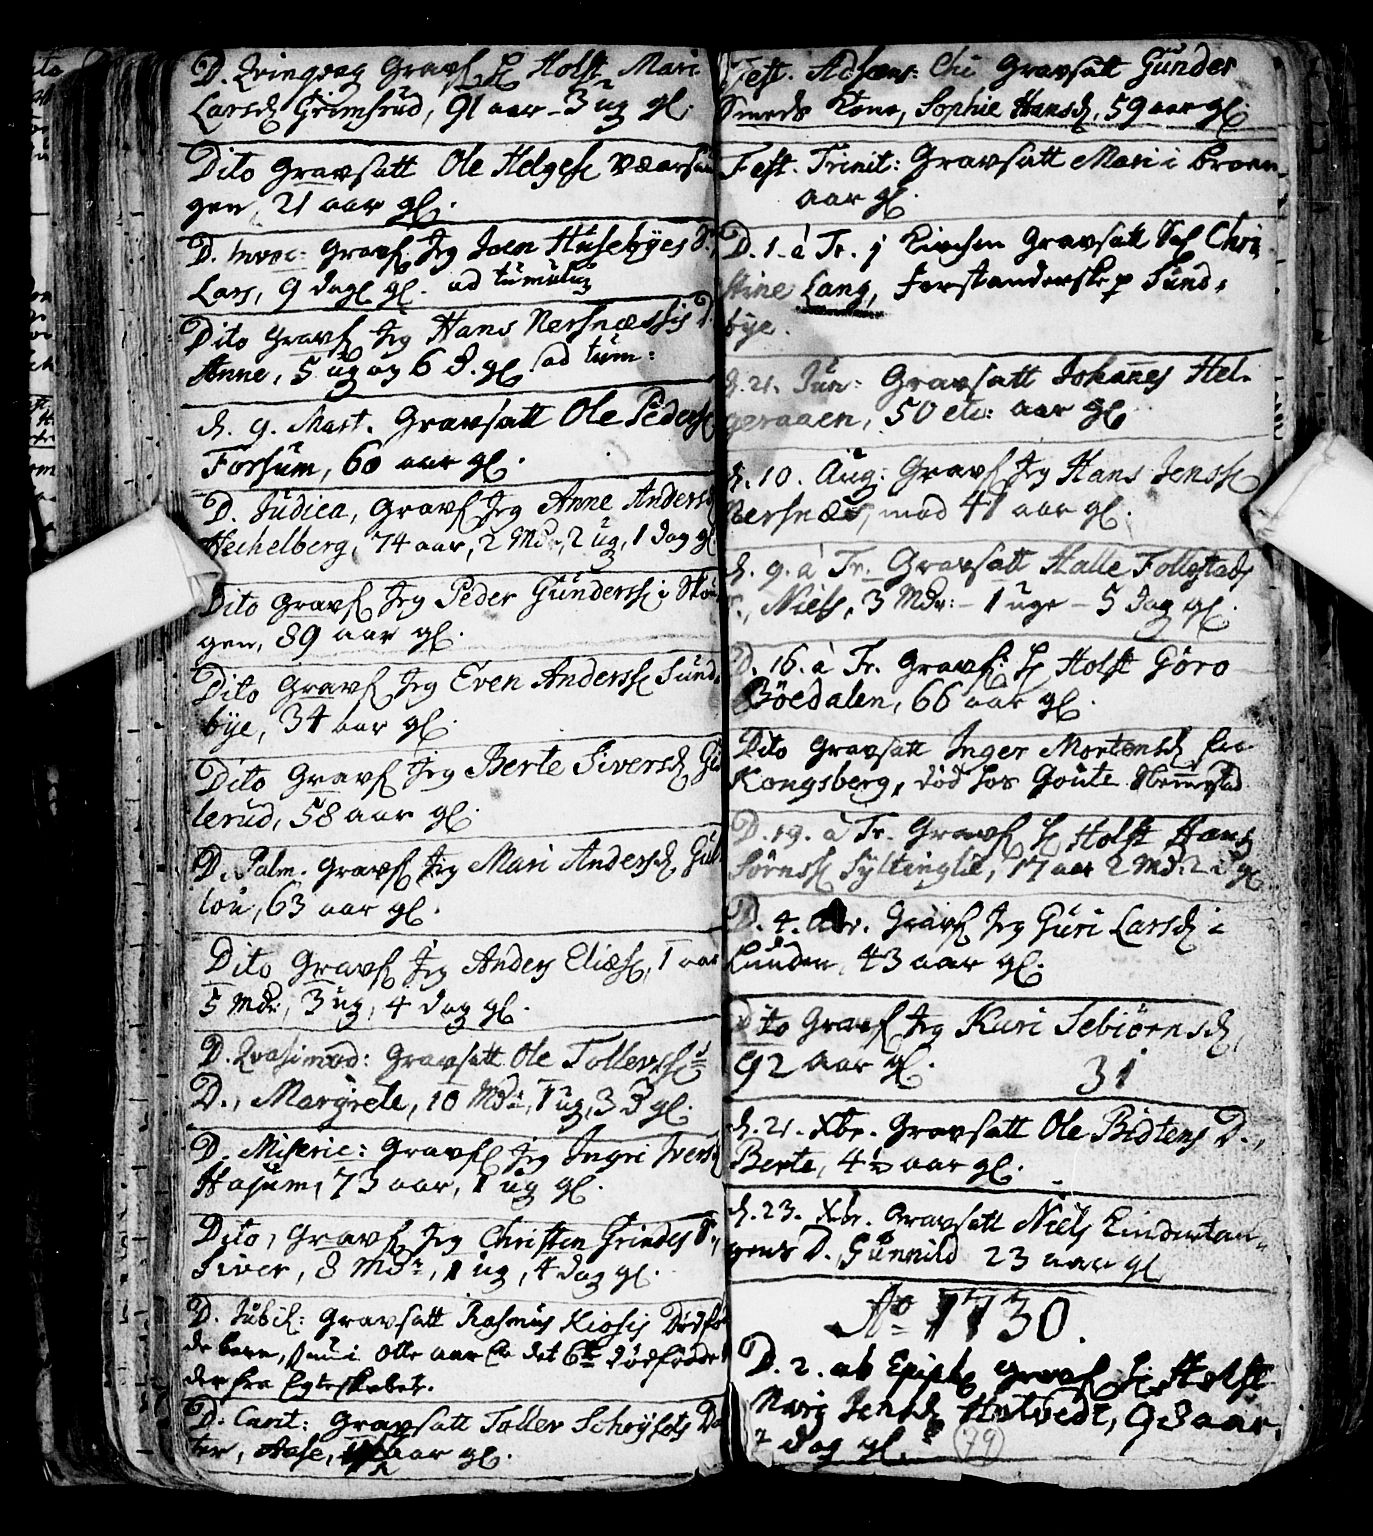 D. Qvinqvag Gravs. H Holst Mari
Larsd. Grimsrud, 91 aar - 3 ug gl.
Dito Gravsatt Ole Helges. Vaarsun
gen, 21 aar gl.
D. Invoc: Gravs. Jeg Joen Husebyes S.,
Lars, 9 dage gl. ad tumulum
Dito Gravs. Jeg Hans Nersnæssis D.
Anne, 5 ug og 6 D. gl ad tum:
d. 9. Mart. Gravsatt Ole Peders.
Forsum, 60 aar gl.
D. Judica, Gravs. Jeg Anne Andersd.
Hechelberg, 74 aar, 2 Mdr, 2 ug, 1 dag gl.
Dito Gravs. Jeg Peder Gunderss. i Skou
gen, 89 aar gl.
Dito Gravs. Jeg Even Anderss. Sund-
bye, 34 aar gl.
Dito Gravs. Jeg Berte Siversd. Gu
lerud, 58 aar gl.
D. Palm. Gravs. Jeg Mari Andersd. Gul
lou, 63 aar gl.
Dito Gravs. Jeg Anders Elias., 1 aar
5 Mdr, 3 ug, 4 dag gl.
D. Qvasimod: Gravsatt Ole Tollerss.
D., Margrete, 10 Mdr, 1 ug, 3 D gl.
D. Miseric: Gravs. Jeg Ingri Iversd
Hasum, 73 aar, 1 ug gl.
Dito, Gravs. Jeg Christen Grindes S.,
Siver, 8 Mdr, 1 ug, 4 dag gl.
D. Jubil. Gravsatt Rasmus Kiosis Dødfø
de barn, som i Otte aar er det 6te dødfødde
der fra Egteskabet.
D. Cantt: Gravsatt Toller Schrysets Do
ter, Aase, aar gl.
Fest. Adscens: Chi Gravsatt Gunder
Smeds Kone, Sophie Hansd., 59 aar gl.
Fest. Trinit: Gravsatt Mari i Broen
aar gl.
D. 1. à Tr. j Kirchen Gravsatt Sal Chri
stine Lang, Forstanderske p Sund-
bye.
d. 21. Jun: Gravsatt Johannes Hel-
geraaen, 50 etc: aar gl
d. 10. Aug: Gravs. Jeg Hans Jenss.
Nersnæs, mod 41 aar gl.
d. 9. à Tr. Gravsatt Halle Follestads
S., Niels, 3 Mdr: - 1 uge - 5 dag gl.
D. 16. à Tr. Gravs. H Holst Goro
Böedalen, 66 aar gl.
Dito Gravsatt Inger Mortensd. fra
Kongsberg, død hos Goute Stennestad
D. 19. à Tr. Gravs. H Holst Hans
Sörnss. Syltinglie, 17 aar 2 Md. 2 D gl.
D. 4. Adv. Gravs. Jeg Guri Larsd. i
Lunden, 43 aar gl.
Dito Gravs. Jeg Kari Sebiörnsd.
92 aar gl.
31
d. 21. Xbr. Gravsatt Ole Bidtens D.,
Berte, 4½ aar gl.
d. 23. Xbr. Gravsatt Niels Eindertan-
gens D. Gunnild 23 aar gl
Ao 1730.
D. 2. ab Epiph Gravs. H. Holst
Mari Jensd. Hotvedt, 98 aar,
7 dag gl.
(79)